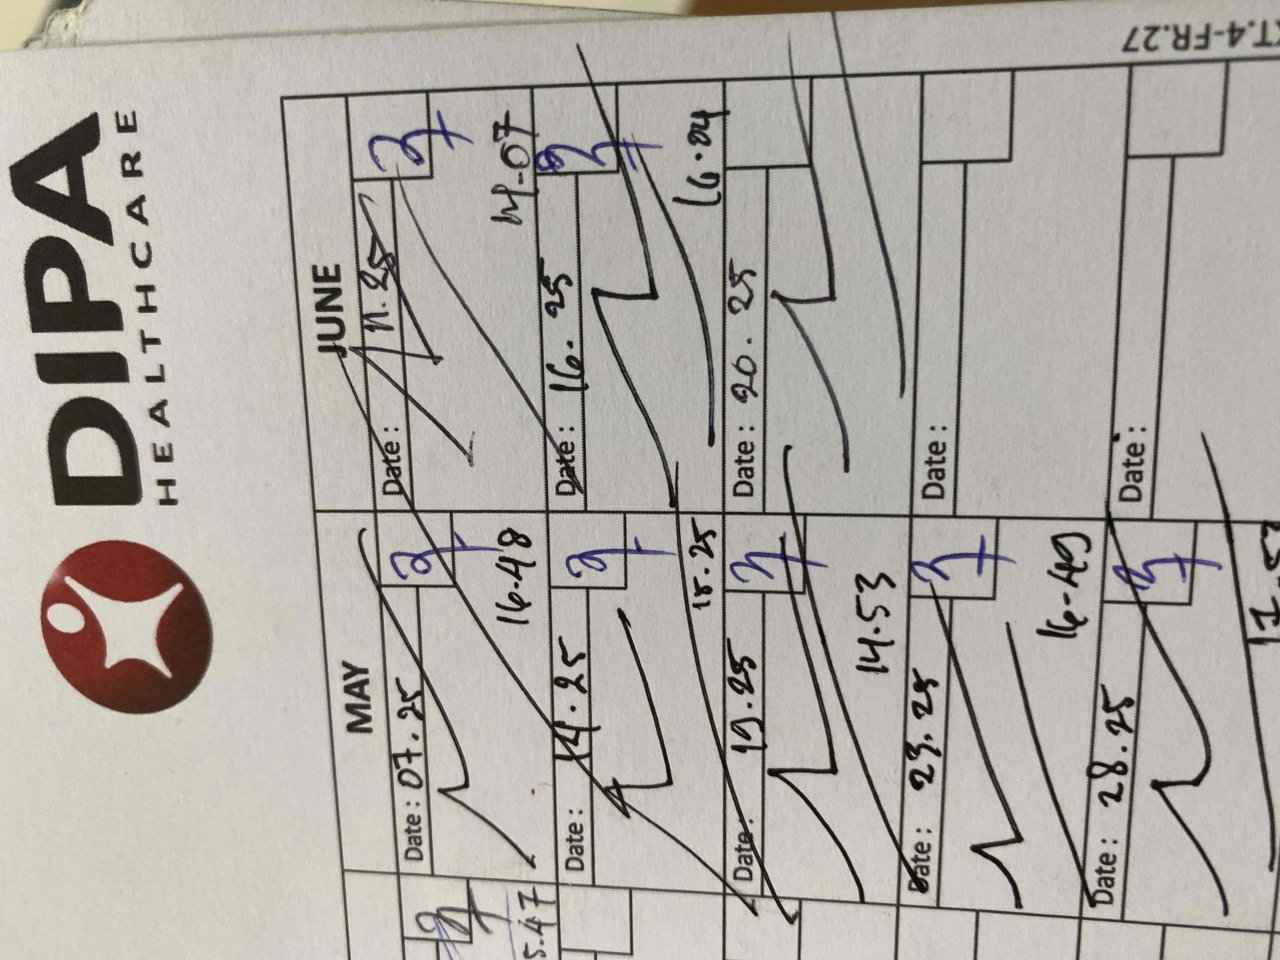 DIPA
HEALTHCARE
T.4-FR.27
MAY
JUNE
Date : 07.25
16.48
Date : 11.25
14.07
Date : 14.25
18.25
Date : 16.25
16.04
Date : 19.25
14.53
Date : 20.25
Date : 23.25
16.49
Date :
Date : 28.25
17.53
Date :
5.47